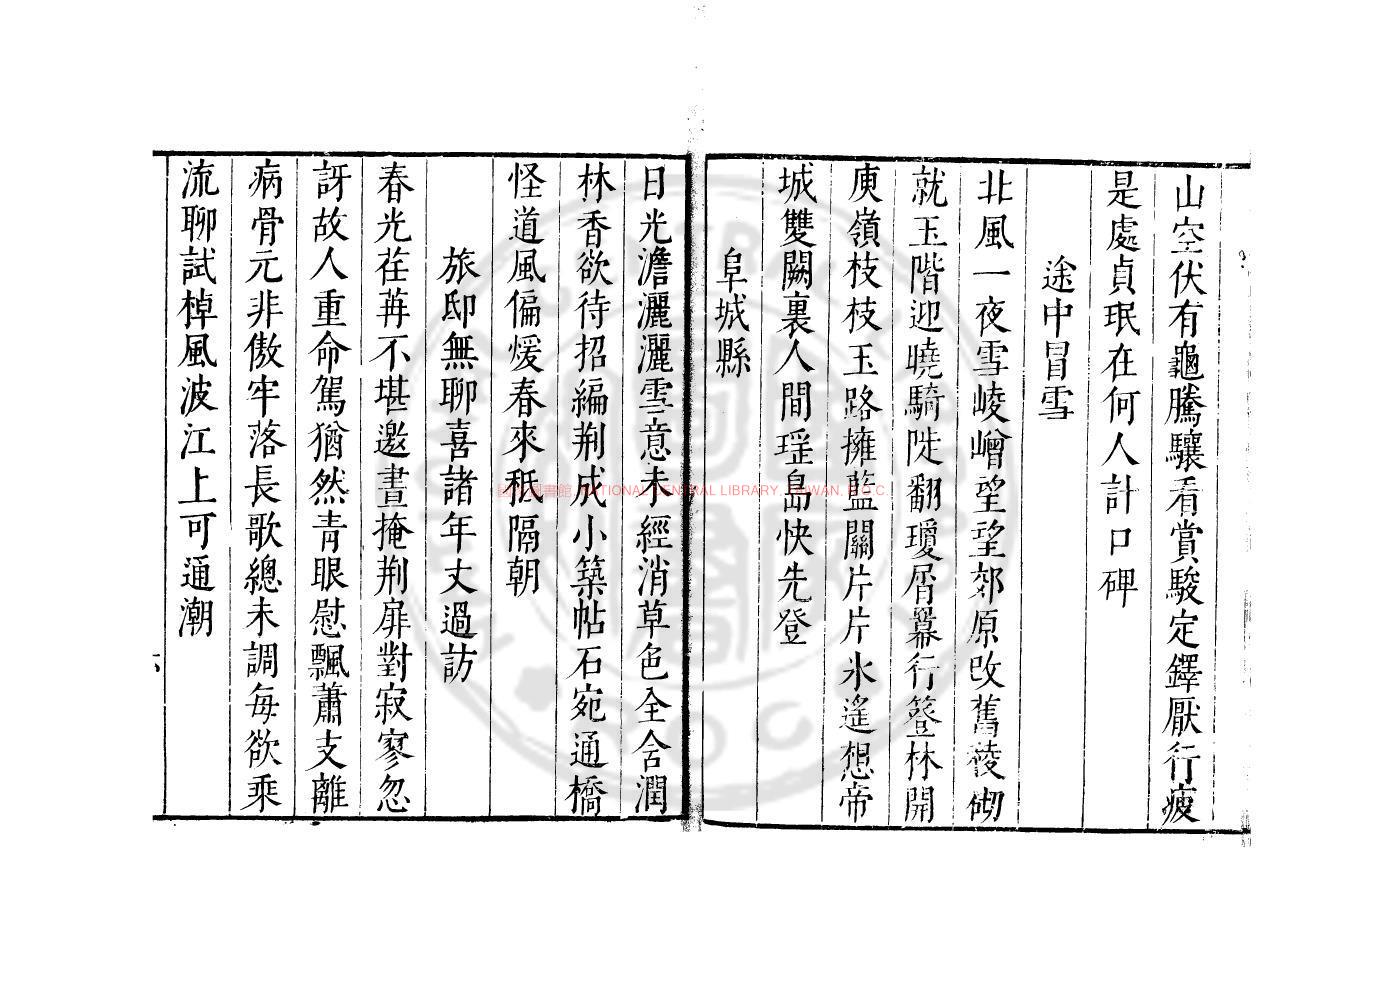 山空伏有龜騰驤看賞駿定鐸厭行瘦
是處貞珉在何人計口碑
途中冒雪
北風一夜雪崚嶒望望郊原改舊稜砌
就玉階迎曉騎陡翻瓊屑羃行簦林開
庾嶺枝枝玉路擁藍關片片氷遙想帝
城雙闕裏人間瑶島快先登
阜城縣
日光澹灑灑雪意未經消草色全含潤
林香欲待招編荆成小築帖石宛通橋
怪道風偏煖春來秪隔朝
旅邸無聊喜諸年丈過訪
春光荏苒不堪邀晝掩荆扉對寂寥忽
訝故人重命駕猶然青眼慰飄蕭支離
病骨元非傲牢落長歌總未調每欲乘
流聊試棹風波江上可通潮
國家圖書館 NATIONAL CENTRAL LIBRARY, TAIWAN, R.O.C.